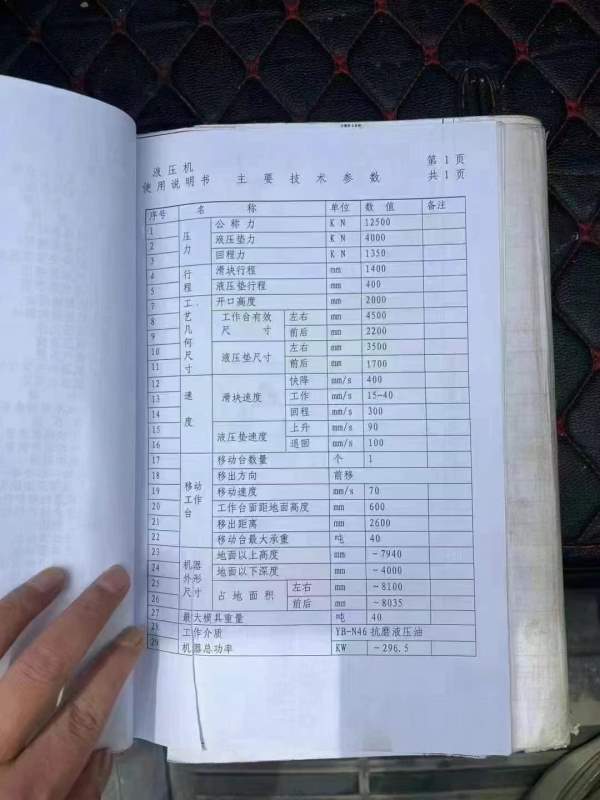 液压机
使用说明书 主要技术参数 第1页
共1页
序号 名称 单位 数值 备注
1 压力 公称力 KN 12500
2 液压垫力 KN 4000
3 回程力 KN 1350
4 行程 滑块行程 mm 1400
5 液压垫行程 mm 400
7 工艺几何尺寸 开口高度 mm 2000
8 工作台有效尺寸 左右 mm 4500
9 前后 mm 2200
10 液压垫尺寸 左右 mm 3500
11 前后 mm 1700
12 速度 滑块速度 快降 mm/s 400
13 工作 mm/s 15-40
14 回程 mm/s 300
15 液压垫速度 上升 mm/s 90
16 退回 mm/s 100
17 移动工作台 移动台数量 个 1
18 移出方向 前移
19 移动速度 mm/s 70
20 工作台面距地面高度 mm 600
21 移出距离 mm 2600
22 移动台最大承重 吨 40
23 机器外形尺寸 地面以上高度 mm ~7940
24 地面以下深度 mm ~4000
25 占地面积 左右 mm ~8100
26 前后 mm ~8035
27 最大模具重量 吨 40
28 工作介质 YB-N46抗磨液压油
29 机器总功率 KW ~296.5